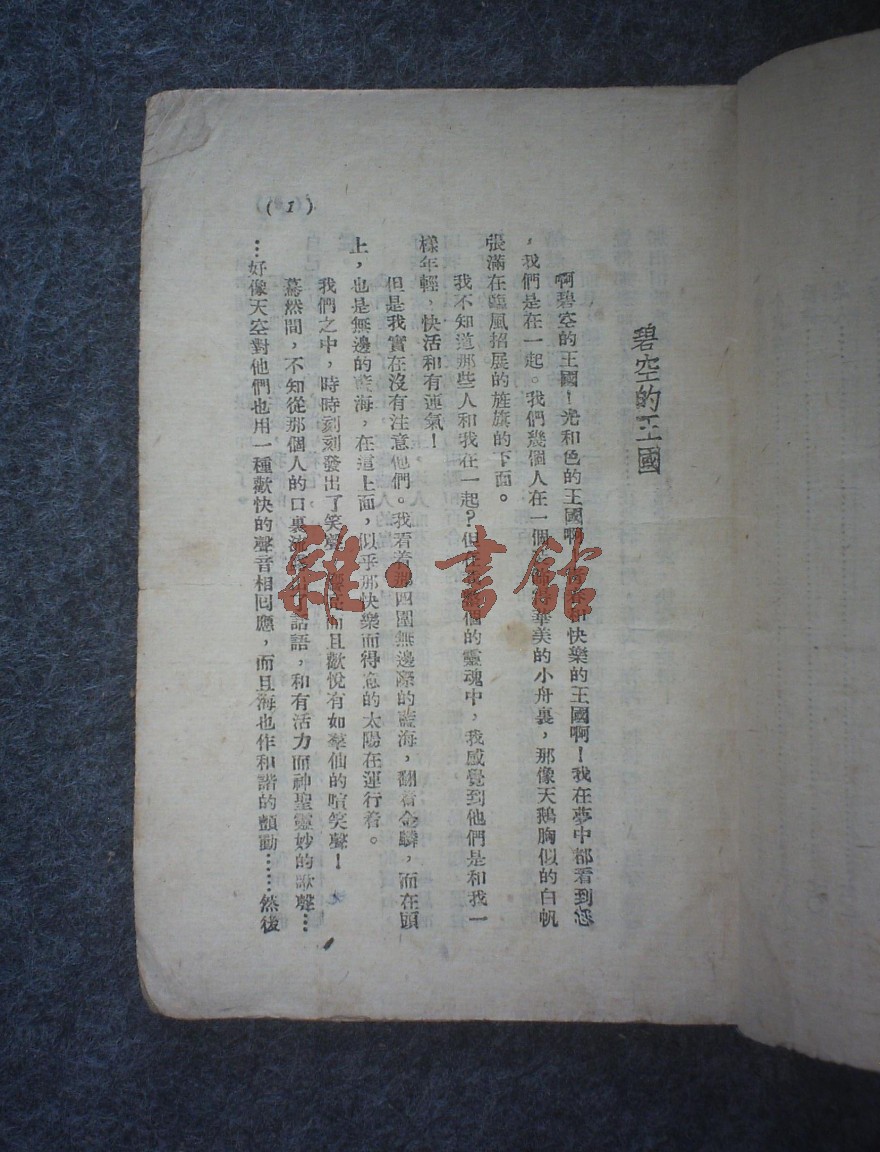 碧空的王國
啊碧空的王國！光和色的王國啊！快樂的王國啊！我在夢中都看到您
，我們是在一起。我們幾個人在一個華美的小舟裏，那像天鵝胸似的白帆
張滿在臨風招展的旌旗的下面。
我不知道那些人和我在一起？但在的靈魂中，我感覺到他們是和我一
樣年輕，快活和有運氣！
但是我實在沒有注意他們。我看着那四圍無邊際的藍海，翻着金鱗，而在頭
上，也是無邊的藍海，在這上面，似乎那快樂而得意的太陽在運行着。
我們之中，時時刻刻發出了笑聲，而且歡悅有如羣仙的喧笑聲！
驀然間，不知從那個人的口裏話語，和有活力而神聖靈妙的歌聲…
…好像天空對他們也用一種歡快的聲音相回應，而且海也作和諧的顫動……然後
(1)
雜·書館